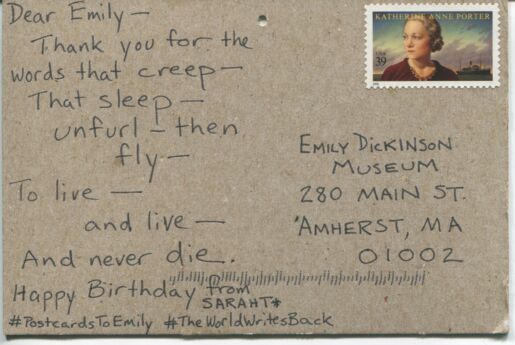 Dear Emily —
Thank you for the
words that creep —
That sleep —
unfurl — then
fly —
To live —
and live —
And never die.
Happy Birthday from
SARAHT*
#PostcardsToEmily #TheWorldWritesBack
KATHERINE ANNE PORTER
39
EMILY DICKINSON
MUSEUM
280 MAIN ST.
AMHERST, MA
01002